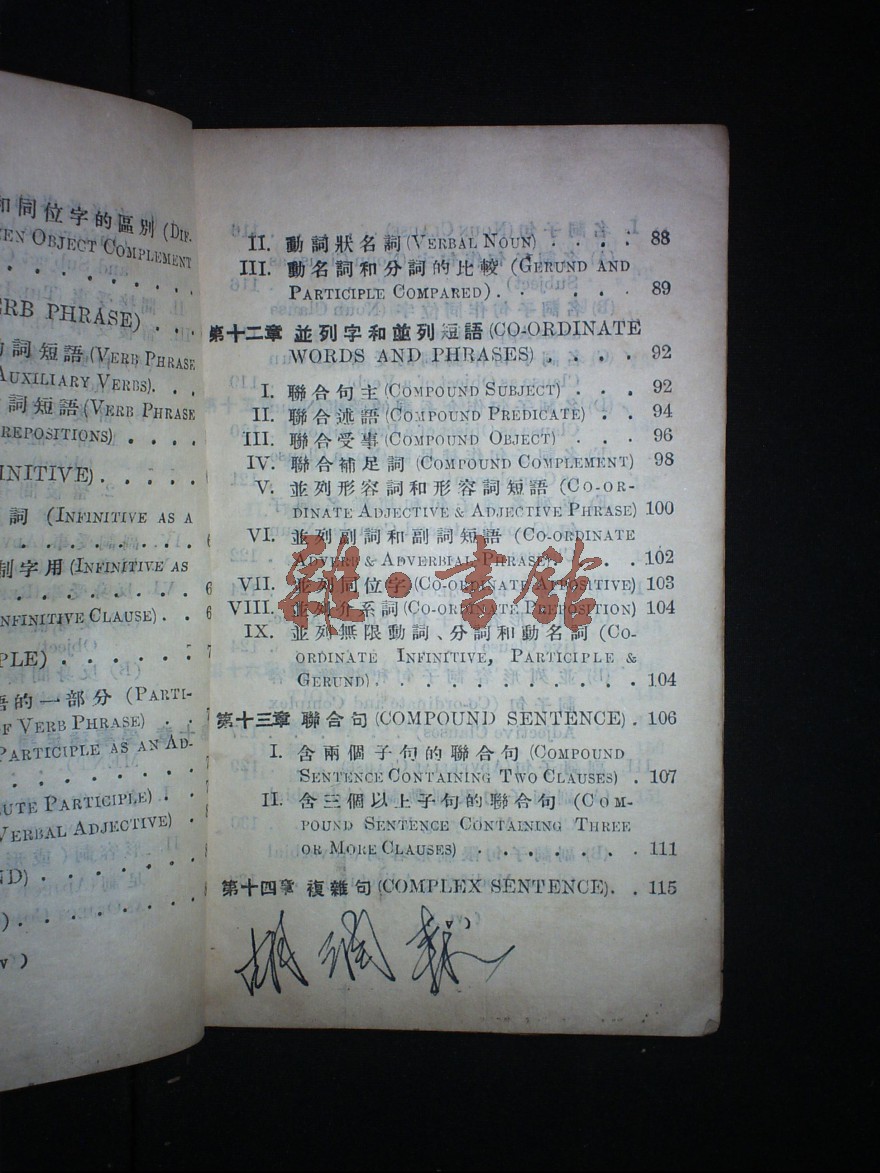 和同位字的區別 (DIF-
EN OBJECT COMPLEMENT
ERB PHRASE) . . .
詞短語 (VERB PHRASE
AUXILIARY VERBS). . .
詞短語 (VERB PHRASE
REPOSITIONS) . . . .
INITIVE) . . . . .
詞 (INFINITIVE AS A
制字用 (INFINITIVE AS
NFINITIVE CLAUSE) . .
PLE) . . . . . .
語的一部分 (PARTI-
OF VERB PHRASE) . .
PARTICIPLE AS AN AD-
LUTE PARTICIPLE) . . .
VERBAL ADJECTIVE) .
ND) . . . . . . .
v )
II. 動詞狀名詞 (VERBAL NOUN) . . . . 88
III. 動名詞和分詞的比較 (GERUND AND
PARTICIPLE COMPARED) . . . . . . 89
第十二章 並列字和並列短語 (CO-ORDINATE
WORDS AND PHRASES) . . . . 92
I. 聯合句主 (COMPOUND SUBJECT) . . . 92
II. 聯合述語 (COMPOUND PREDICATE) . . 94
III. 聯合受事 (COMPOUND OBJECT) . . . 96
IV. 聯合補足詞 (COMPOUND COMPLEMENT) 98
V. 並列形容詞和形容詞短語 (CO-OR-
DINATE ADJECTIVE & ADJECTIVE PHRASE) 100
VI. 並列副詞和副詞短語 (CO-ORDINATE
ADVERB & ADVERBIAL PHRASE) . . . . 102
VII. 並列同位字 (CO-ORDINATE APPOSITIVE) 103
VIII. 並列介系詞 (CO-ORDINATE PREPOSITION) 104
IX. 並列無限動詞、分詞和動名詞 (CO-
ORDINATE INFINITIVE, PARTICIPLE &
GERUND) . . . . . . . . . . 104
第十三章 聯合句 (COMPOUND SENTENCE) . 106
I. 含兩個子句的聯合句 (COMPOUND
SENTENCE CONTAINING TWO CLAUSES) . 107
II. 含三個以上子句的聯合句 (COM-
POUND SENTENCE CONTAINING THREE
OR MORE CLAUSES) . . . . . . . 111
第十四章 複雜句 (COMPLEX SENTENCE) . . 115
雜·書館